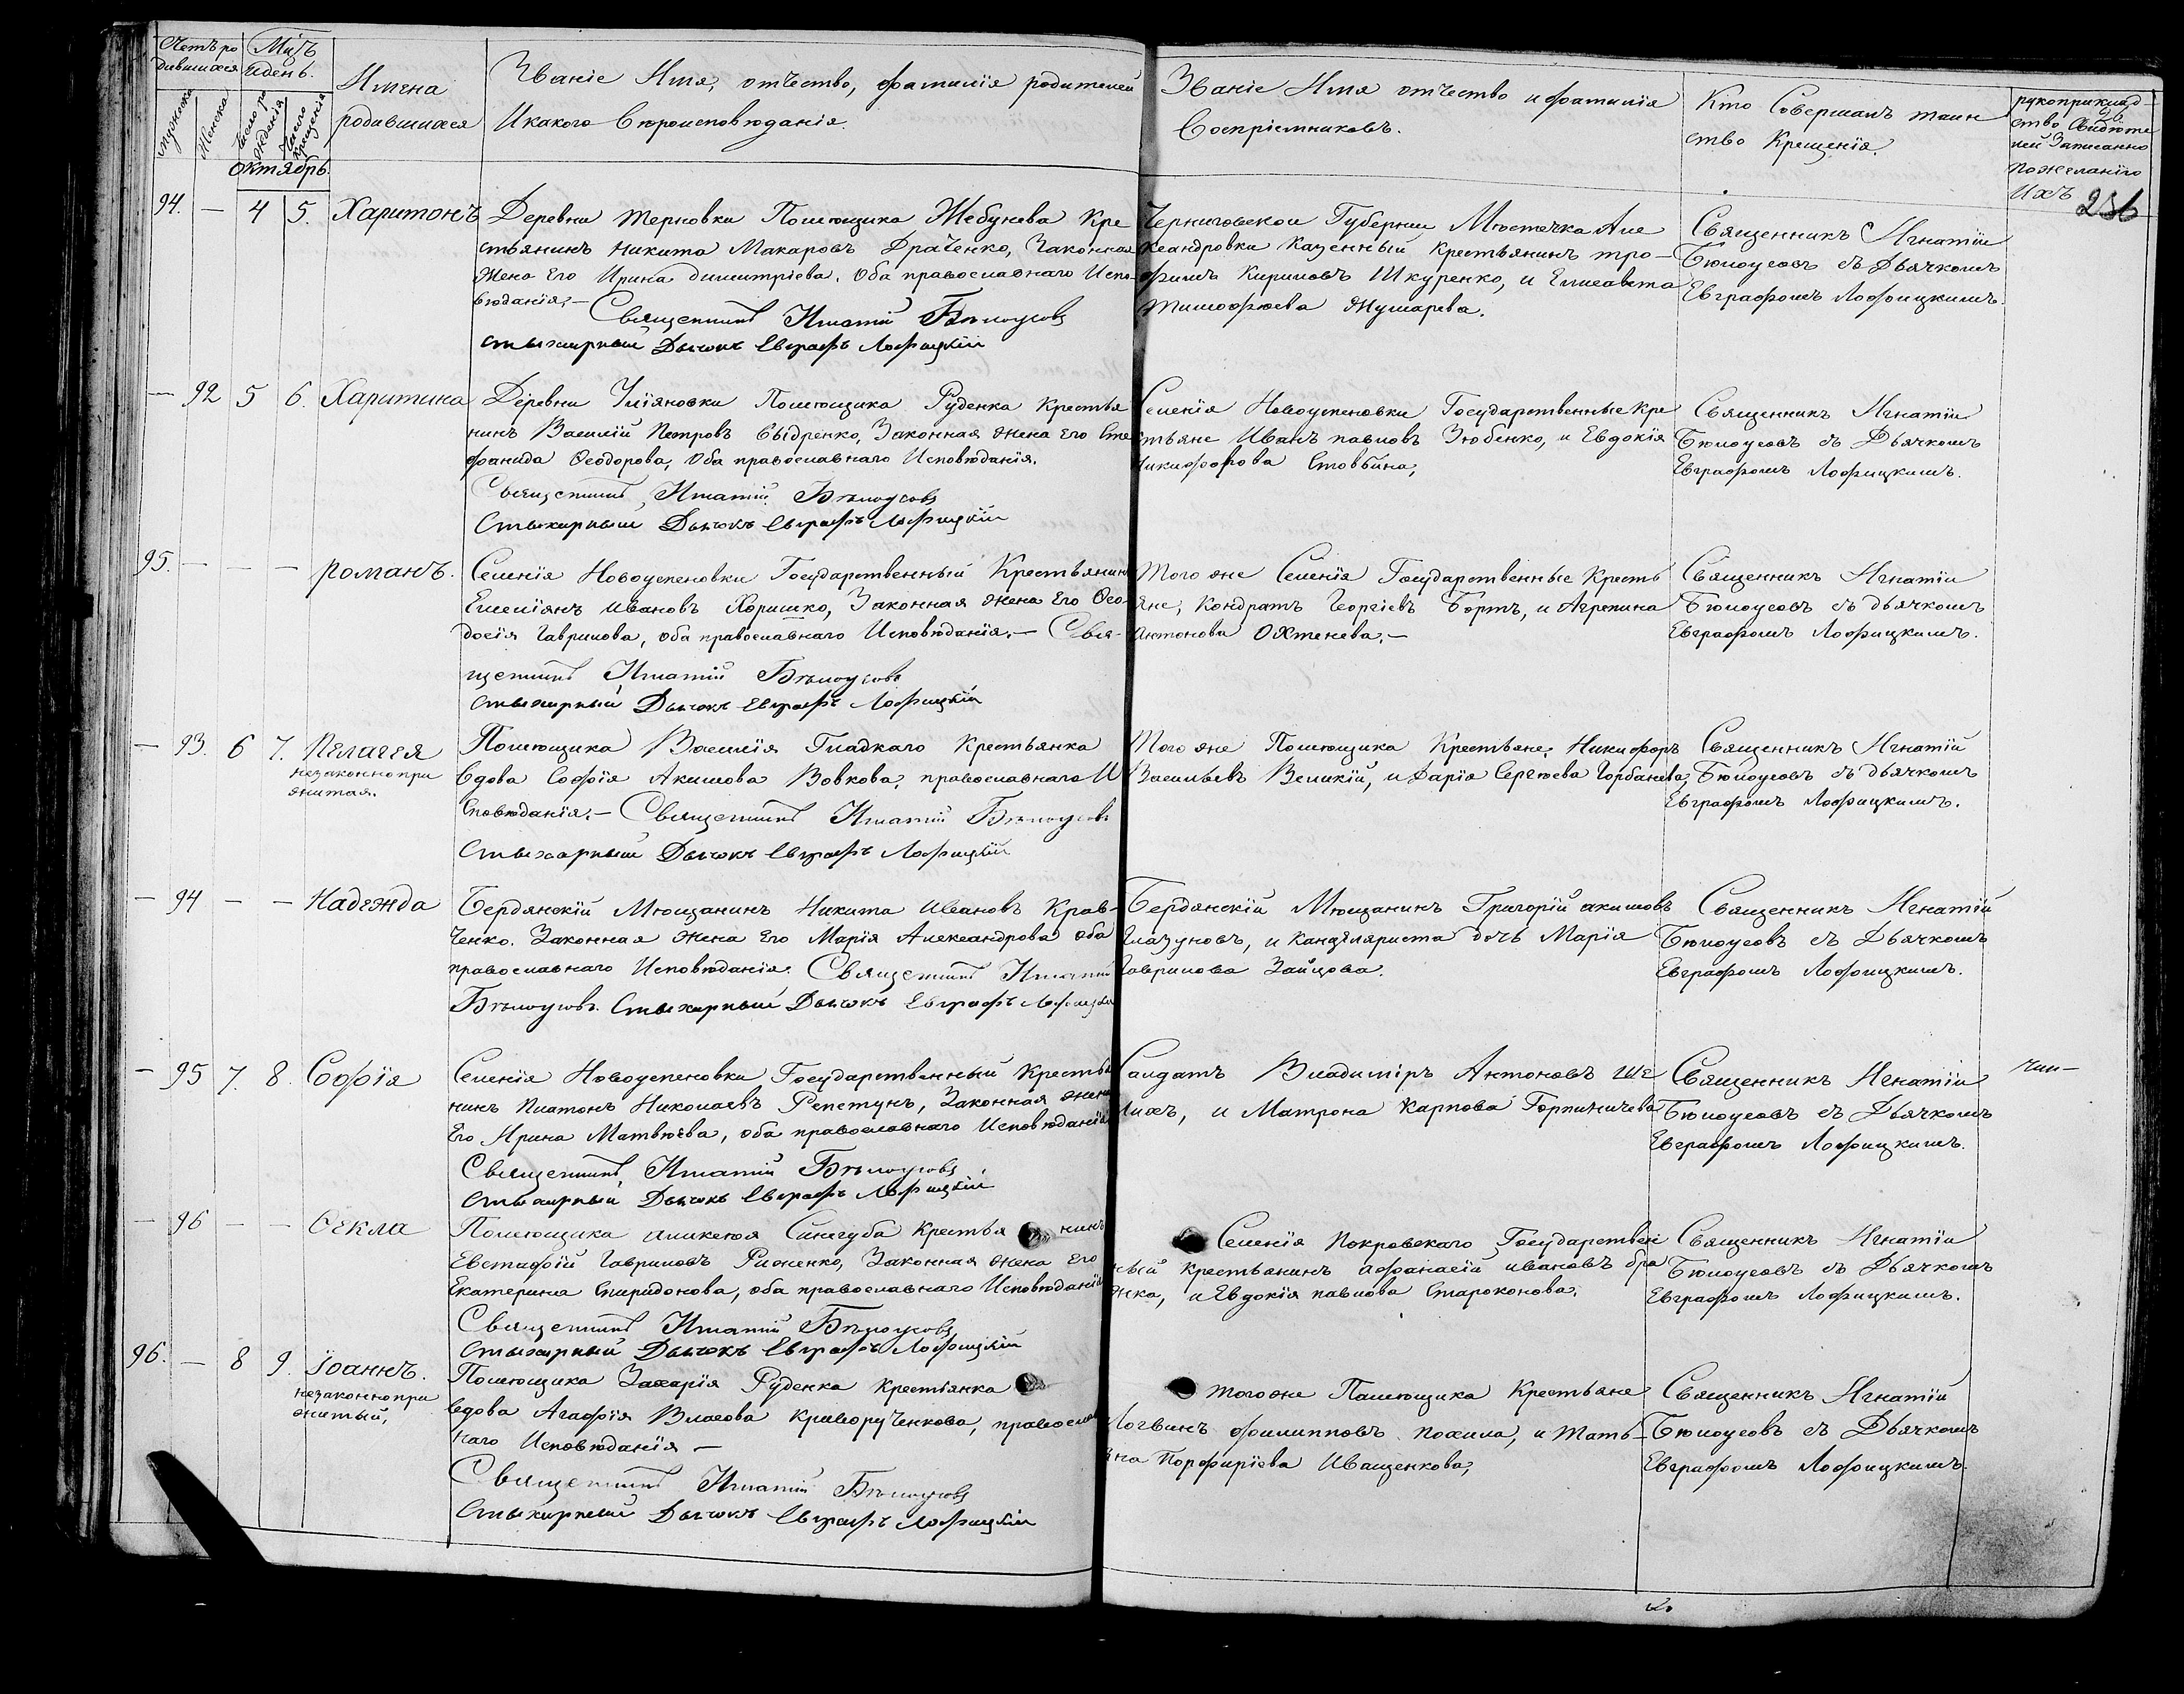 Счетъ ро
дившихся
Мцъ
Идень.
мужеска
Женска
Число ро
жденія
Число
крещенія
Октябрь.
Имена
родившихся
Званіе Имя, отчество, фамилія родителей
Икакого Вѣроисповѣданія.
Званіе Имя отчество и фамилія
Воспріемниковъ.
Кто Совершалъ таин
ство Крещенія.
рукоприклад
ство Свидѣте
лей Записанно
пожеланію
Ихъ
236
94. — 4 5. Харитонъ
Деревни Терновки Помѣщика Жебунева Кре
стьянинъ Никита Макаровъ Драченко, Законная
Жена Его Ирина Димитріева. Оба православнаго Испо-
вѣданія. —
Священникъ Игнатій Бѣлоусовъ
Стихарный Дьячокъ Евграфъ Лофицкій
Черниговской Губерніи Мѣстечка Але
ксандровки Казенный Крестьянинъ тро-
фимъ Кириловъ Шкуренко, и Елисавета
Тимофѣева Жушарева.
Священникъ Игнатій
Бѣлоусовъ съ Дьячкомъ
Евграфомъ Лофицкимъ.
— 92 5 6. Харитина
Деревни Уліяновки Помѣщика Руденка Крестья
нинъ Василій Петровъ Выдренко, Законная жена Его Сте
фанида Ѳеодорова, Оба православнаго Исповѣданія.
Священникъ Игнатій Бѣлоусовъ
Стихарный Дьячокъ Евграфъ Лофицкій
Селенія Новоуспеновки Государственные Кре
стьяне Иванъ павловъ Зюбенко, и Евдокія
Никифорова Стовбина,
Священникъ Игнатій
Бѣлоусовъ съ Дьячкомъ
Евграфомъ Лофицкимъ.
95. — — — романъ.
Селенія Новоуспеновки Государственный Крестьянинъ
Емеліянъ Ивановъ Хоришко, Законная жена Его Ѳео-
досія Гаврилова, оба православнаго Исповѣданія. — Свя-
щенникъ Игнатій Бѣлоусовъ
Стихарный Дьячокъ Евграфъ Лофицкій
Того же Селенія Государственные Кресть
яне, Кондратъ Георгіевъ Бортъ, и Агрепина
Антонова Охтенева. —
Священникъ Игнатій
Бѣлоусовъ съ дьячкомъ
Евграфомъ Лофицкимъ.
— 93. 6 7. Пелагея
незаконно при
житая.
Помѣщика Василія Гладкаго Крестьянка
Вдова Софія Акимова Вовкова, православнаго И
сповѣданія. — Священникъ Игнатій Бѣлоусовъ
Стихарный Дьячокъ Евграфъ Лофицкій
Того же Помѣщика Крестьяне Никифоръ
Васильевъ Великій, и Дарія Сергѣева Горбанева,
Священникъ Игнатій
Бѣлоусовъ съ дьячкомъ
Евграфомъ Лофицкимъ.
— 94 — — Надежда
Бердянскій Мѣщанинъ Никита Ивановъ Крав-
ченко. Законная жена Его Марія Александрова оба
православнаго Исповѣданія. Священникъ Игнатій
Бѣлоусовъ. Стихарный Дьячокъ Евграфъ Лофицкій
Бердянскій Мѣщанинъ Григорій акимовъ
Глазуновъ, и Канцеляриста дочь Марія
Гаврилова Зайцова.
Священникъ Игнатій
Бѣлоусовъ съ Дьячкомъ
Евграфомъ Лофицкимъ.
— 95 7. 8. Софія
Селенія Новоуспеновки Государственный Крестья
нинъ Платонъ Николаевъ Репетунъ, Законная жена
Его Ирина Матвѣева, оба православнаго Исповѣданія
Священникъ Игнатій Бѣлоусовъ
Стихарный Дьячокъ Евграфъ Лофицкій
Салдатъ Владиміръ Антоновъ Ше
лихъ, и Матрона Карпова Горпиничева
Священникъ Игнатій
Бѣлоусовъ съ Дьячкомъ
Евграфомъ Лофицкимъ.
— 96 — — Ѳекла
Помѣщика Алексѣя Синегуба Крестья нинъ
Евстафій Гавриловъ Риженко, Законная жена Его
Екатерина Спиридонова, оба православнаго Исповѣданія
Священникъ Игнатій Бѣлоусовъ
Стихарный Дьячокъ Евграфъ Лофицкій
Селенія Покровскаго Государствен
ный Крестьянинъ Афанасій ивановъ бра
жка, и Евдокія павлова Староконова.
Священникъ Игнатій
Бѣлоусовъ съ Дьячкомъ
Евграфомъ Лофицкимъ.
96. — 8 9. Іоаннъ.
незаконно при
житый,
Помѣщика Захарія Руденка Крестьянка
вдова Агафія Власова Криворученкова, православ
наго Исповѣданія —
Священникъ Игнатій Бѣлоусовъ
Стихарный Дьячокъ Евграфъ Лофицкій
Того же Помѣщика Крестьяне
Логвинъ Филипповъ Похила, и Тать-
яна Порфиріева Иващенкова,
Священникъ Игнатій
Бѣлоусовъ съ Дьячкомъ
Евграфомъ Лофицкимъ.